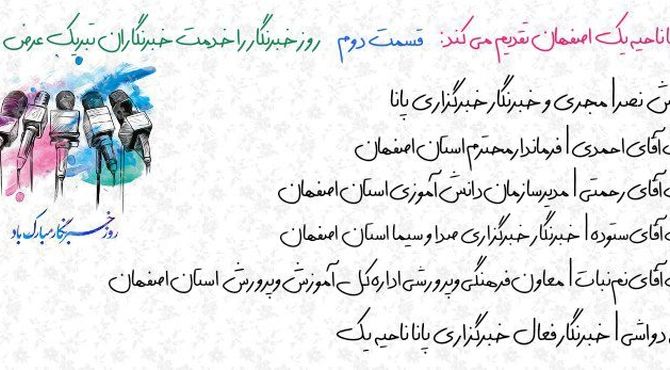 ناحیه یک اصفهان تقدیم می کند: قسمت دوم روز خبرنگار را خدمت خبرنگاران تبریک عرض
نصر | مجری و خبرنگار خبرگزاری پانا
آقای احمدی | فرماندار محترم استان اصفهان
آقای رحمتی | مدیر سازمان دانش آموزی استان اصفهان
آقای ستوده | خبرنگار خبرگزاری صدا و سیما استان اصفهان
آقای نم نبات | معاون فرهنگی و پرورشی اداره کل آموزش و پرورش استان اصفهان
دواشی | خبرنگار فعال خبرگزاری پانا ناحیه یک
روز خبرنگار مبارک باد